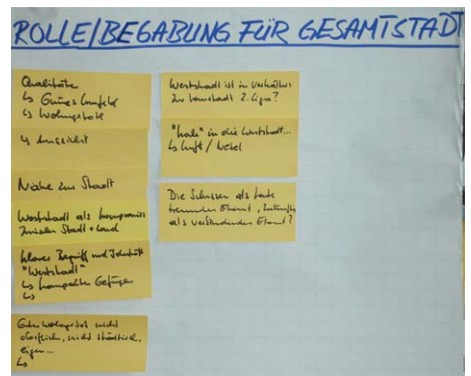 ROLLE/BEGABUNG FÜR GESAMTSTADT
Qualitäten
↳ Grünes Umfeld
↳ Wohngebiete
↳ Aussicht
Nähe zur Stadt
Weststadt als Kompromiss
zwischen Stadt + Land
klarer Begriff und Identität
"Weststadt"
↳ kompaktes Gefüge
↳
Gutes Wohngebiet nicht
nicht städtisch,
eigen...
↳
Weststadt ist im Verhältnis
zur Kernstadt 2. Liga?
"hoch" in die Weststadt...
↳ Luft / Nebel
Die Schussen als heute
trennendes Element, zukünftig
als verbindendes Element?